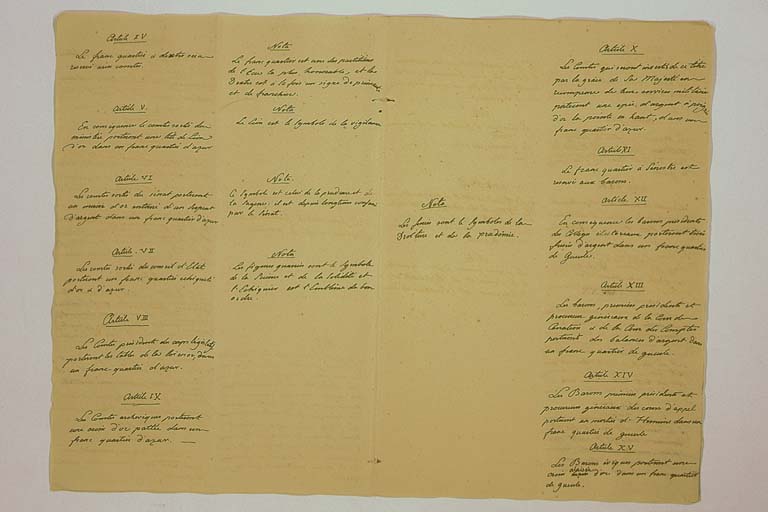 Article IV
Le franc quartier à dextre sera
réservé aux comtes.
Article V.
En conséquence le comte sorti du
ministère porteront une tête de Lion
d'or dans un franc quartier d'azur
Article VI
Les comtes sortis du sénat porteront
un miroir d'or entouré d'un serpent
d'argent dans un franc quartier d'azur
Article VII
Les comtes sortis du conseil d'Etat
porteront un franc quartier echiqueté
d'or & d'azur.
Article VIII
Les Comtes présidents du corps législatif
porteront les tables de la loi en or, dans
un franc-quartier d'azur.
Article IX
Les Comtes archevêques porteront
une croix d'or pattée dans un
franc quartier d'azur.
Nota
Le franc quartier est une des partitions
de l'écu la plus honorable, et la
Dextre est à la fois un signe de
et de franchise.
Nota
Le Lion est le Symbole de la vigilance
Nota.
Ce Symbole est celui de la prudence et de
la Sagesse; il est depuis longtems
par le Sénat.
Nota
Les figures quarrées sont le Symbole
de la Bonne et de la Solidité et
l'echiquier est l'Emblème du bon
ordre.
Nota
Les fleurs sont le Symbole de la
Droiture et de la prudomie.
Article X
Les Comtes qui seront investis de ce titre
par la grâce de Sa Majesté en
recompense de leurs services militaires
porteront une epée d'argent à poignée
d'or la pointe en haut, dans un
franc quartier d'azur.
Article XI
Le franc quartier à Senestre est
réservé aux barons.
Article XII
En conséquence les barons présidents
de Collèges electoraux porteront trois
fusées d'argent dans un franc quartier
de Gueule.
Article XIII
Les barons, premiers présidents et
procureurs généraux de la Cour de
Cassation & de la Cour des Comptes
porteront des balances d'argent dans
un franc quartier de gueule.
Article XIV
Les Barons premiers présidents et
procureurs généraux des cours d'appel
portent un mortier d'Hermine dans un
franc quartier de gueule
Article XV
Les Barons évêques porteront une
croix alaisée d'or dans un franc quartier
de gueule.